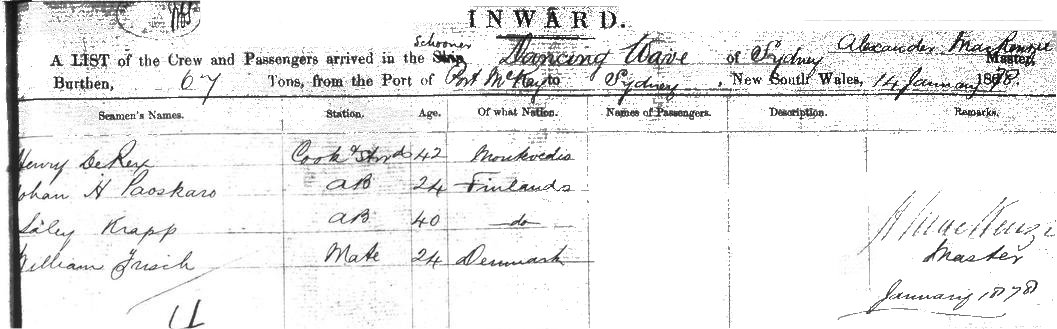 INWARD.
A LIST of the Crew and Passengers arrived in the Schooner Ship Dancing Wave of Sydney Alexander MacKenzie Master,
Burthen, 67 Tons, from the Port of Port McKay to Sydney, New South Wales, 14 January 1878.
Seamen's Names. Station. Age. Of what Nation. Names of Passengers. Description. Remarks.
Henry De Rex Cook & Stwd 42 Montevedio
Johan H Paoskaro AB 24 Finlands
Krapp AB 40 do
William Frisch Mate 24 Denmark
A MacKenzie
Master
January 1878
4